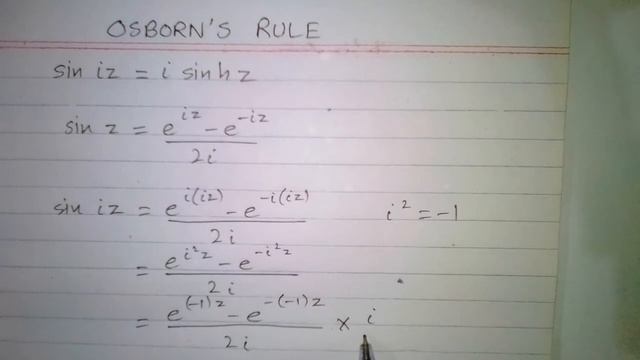 OSBORN'S RULE
sin iz = i sinh z
sin z = (e^{iz} - e^{-iz}) / 2i
sin iz = (e^{i(iz)} - e^{-i(iz)}) / 2i    i² = -1
= (e^{i²z} - e^{-i²z}) / 2i
= (e^{(-1)z} - e^{-(-1)z}) / 2i × i